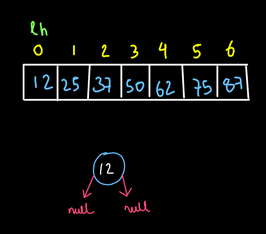 lh
0 1 2 3 4 5 6
12 25 37 50 62 75 87
12
null null